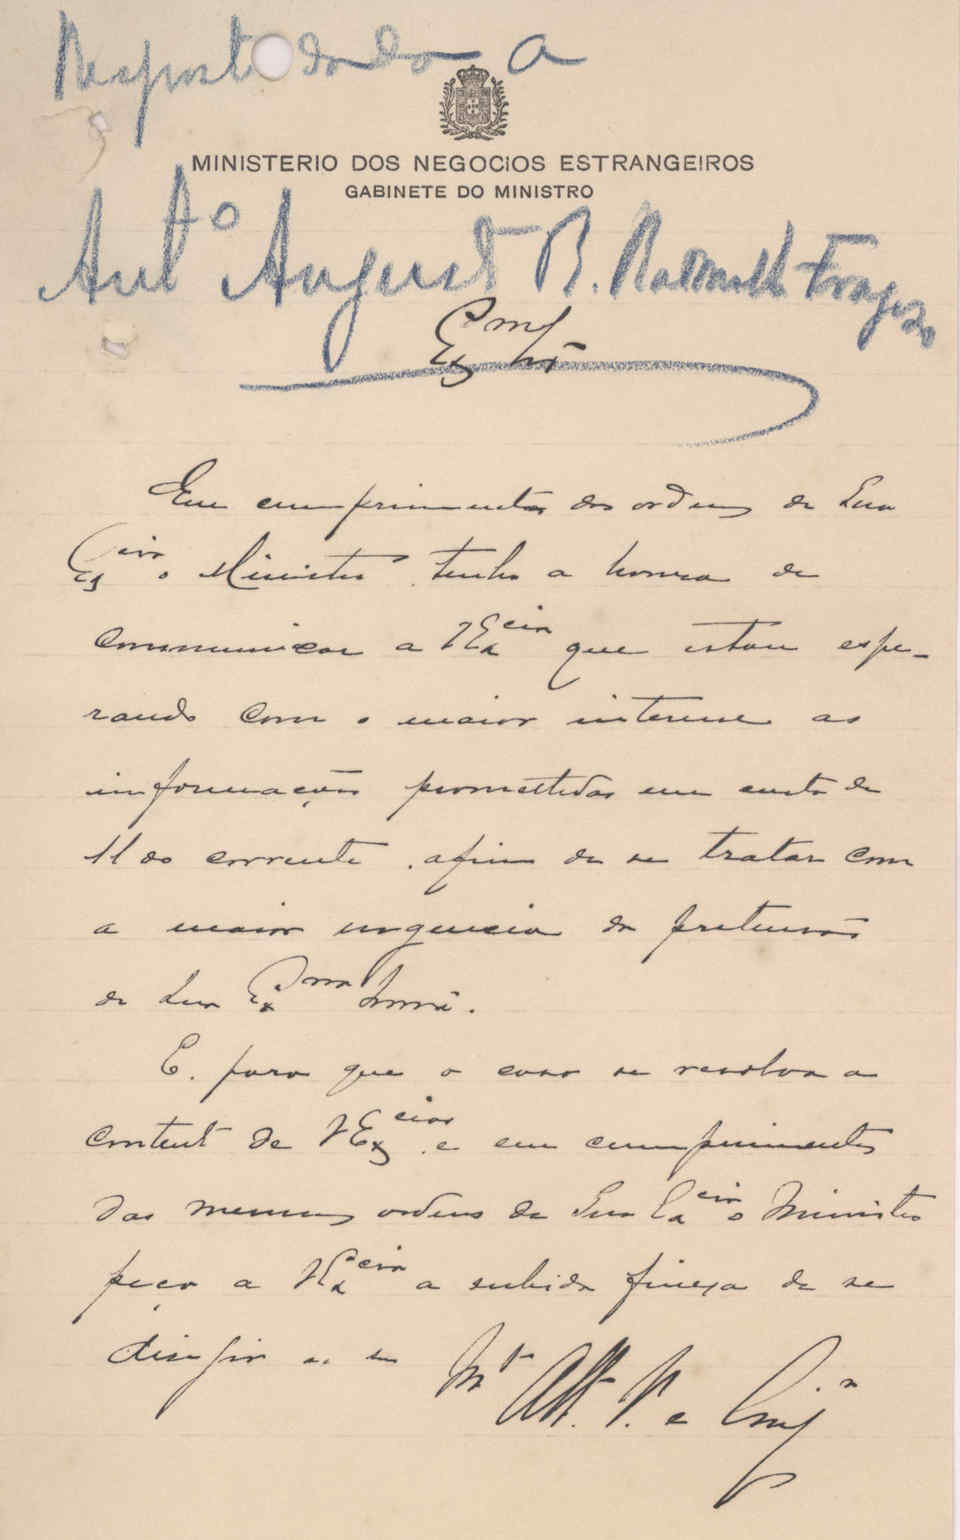 Resposta dada a
MINISTERIO DOS NEGOCIOS ESTRANGEIROS
GABINETE DO MINISTRO
Antº Augusto R.
Exmº Snr
Em cumprimento das ordens de Sua
Excia o Ministro, tenho a honra de
communicar a VExcia que estou espe-
rando com o maior interesse as
informações promettidas em carta de
11 do corrente, afim de se tratar com
a maior urgencia da pretensão
de Sua Exma Irmã.
E. para que o caso se resolva a
contento de VExcias, e em cumprimento
das mesmas ordens de Sua Excia o Ministro
peço a VExcia a subida fineza de se
dirigir ao
Mt Att. V. e